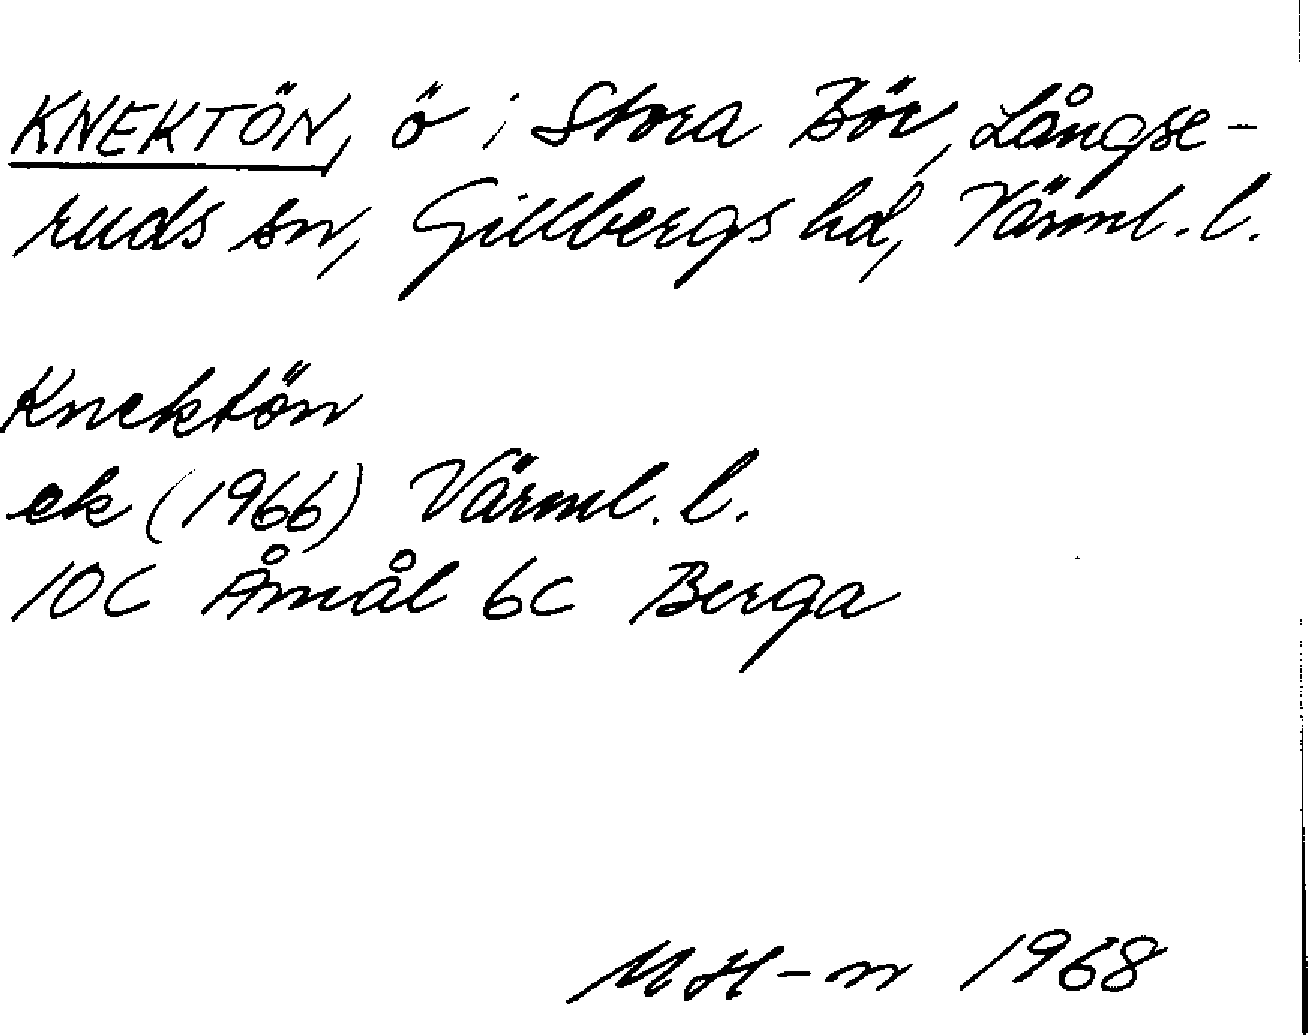 KNEKTÖN, ö i Stora Bör, Långse-
ruds sn, Gillbergs hd, Värml. l.
Knektön
ek (1966) Värml. l.
10C Åmål 6c Berga
MH-n 1968